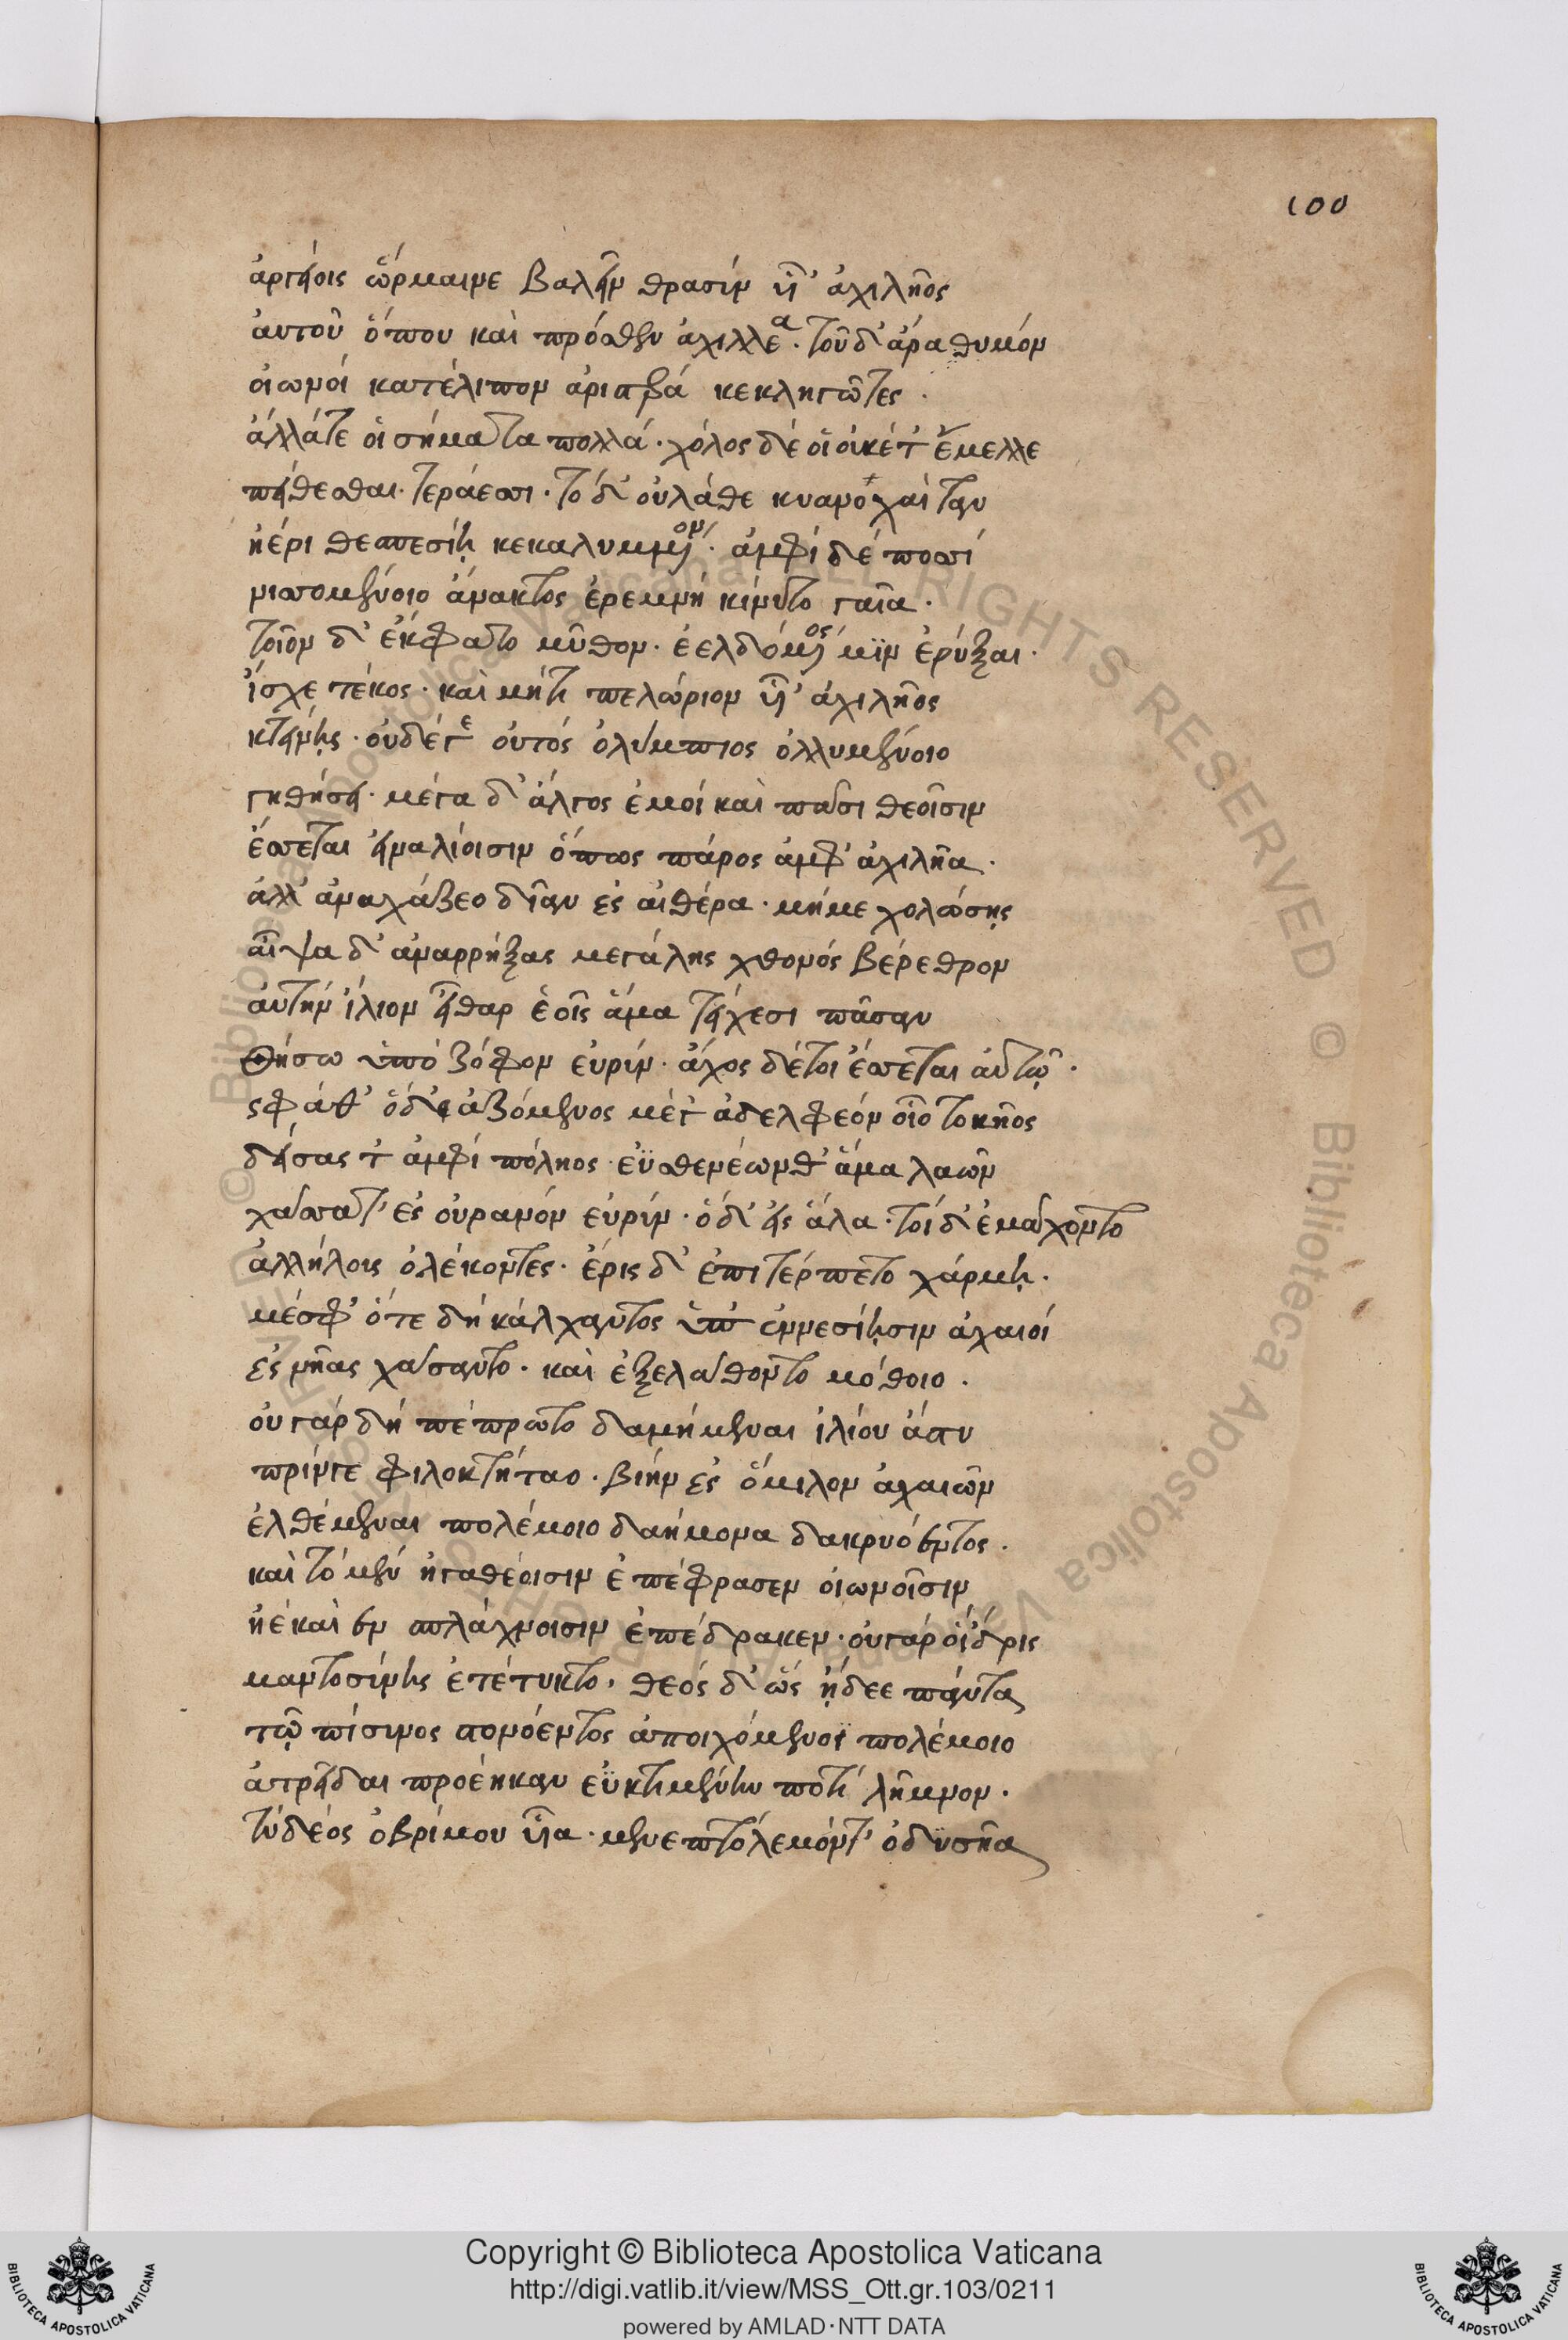 100
ἀργείοις ὥρμαινε βαλεῖν θρασὺν υἷ' ἀχιλῆος
ἀυτοῦ ὅπου καὶ πρόσθεν ἀχιλλέα. τοῦ δ' ἄρα θυμόν
οἰωνοί κατέλιπον ἀριστερά κεκληγῶτες.
ἀλλάτε οἱ σήματα πολλά. χόλος δέ οἱ οὐκέτ' ἔμελλε
πείθεσθαι. τεράεσσι. τὸ δ' οὐ λάθε κυανοχαίταν
ἠέρι θεσπεσίῃ κεκαλυμμένον. ἀμφὶ δὲ ποσσί
νισσομένοιο ἄνακτος ἐρεμνή κίνυτο γαῖα.
τοῖον δ' ἔκφατο μῦθον. ἐελδόμενός μιν ἐρύξαι.
ἴσχε τέκος. καὶ μήτι πελώριον υἷ' ἀχιλῆος
κτείνῃς. οὐδέ γε οὐτός ὀλύμπιος ὀλλυμένοιο
γηθήσει. μέγα δ' ἄλγος ἐμοί καὶ πᾶσι θεοῖσιν
ἔσπεται εἰναλίοισιν ὅπως πάρος ἀμφ' ἀχιλῆα.
ἀλλ' ἀναχάζεο δῖαν ἐς αἰθέρα. μή με χολώσῃς
αἶψα δ' ἀναρρήξας μεγάλης χθονός βέρεθρον
ἀυτήν ἴλιον εἶθαρ ἑοῖς ἅμα τείχεσι πᾶσαν
θήσω ὑπὸ ζόφον εὐρύν. ἄχος δέ τοι ἔσπεται ἀυτῷ.
ςφάθ' ὅδ' ἀζόμενος μέγ' ἀδελφεόν οἷο τοκῆος
δείσας τ' ἀμφὶ πόληος ἐϋσθενέων θ' ἅμα λαῶν
χάσσατ' ἐς οὐρανόν εὐρύν. ὁ δ' εἰς ἅλα. τοὶ δ' ἐμάχοντο
ἀλλήλοις ὀλέκοντες. ἔρις δ' ἐπιτέρπετο χάρμῃ.
μέσφ' ὅτε δή κάλχαντος ὑπ' ἐννεσίῃσιν ἀχαιοί
ἐς νῆας χάσαντο. καὶ ἐξελάθοντο μόθοιο.
οὐ γάρ δή πέπρωτο δαμήμεναι ἰλίου ἄστυ
πρίν γε φιλοκτήταο. βίην ἐς ὅμιλον ἀχαιῶν
ἐλθέμεναι πολέμοιο δαήμονα δακρυόεντος.
καὶ τὸ μὲν ἠγαθέοισιν ἐπέφρασεν οἰωνοῖσιν
ἠέ καὶ ἐν σπλάχνοισιν ἐπέδρακεν. οὐ γάρ ἄϊδρις
μαντοσύνης ἐτέτυκτο, θεός δ' ὥς ᾔδεε πάντα
τῷ πίσυνος στονόεντος ἀποιχόμενοι πολέμοιο
ἀτρεῖδαι προέηκαν ἐϋκτιμένην ποτί λῆμνον.
τυδέος ὀβρίμου υἷα. μενεπτόλεμόν τ' ὀδυσῆα
Copyright © Biblioteca Apostolica Vaticana
http://digi.vatlib.it/view/MSS_Ott.gr.103/0211
powered by AMLAD·NTT DATA